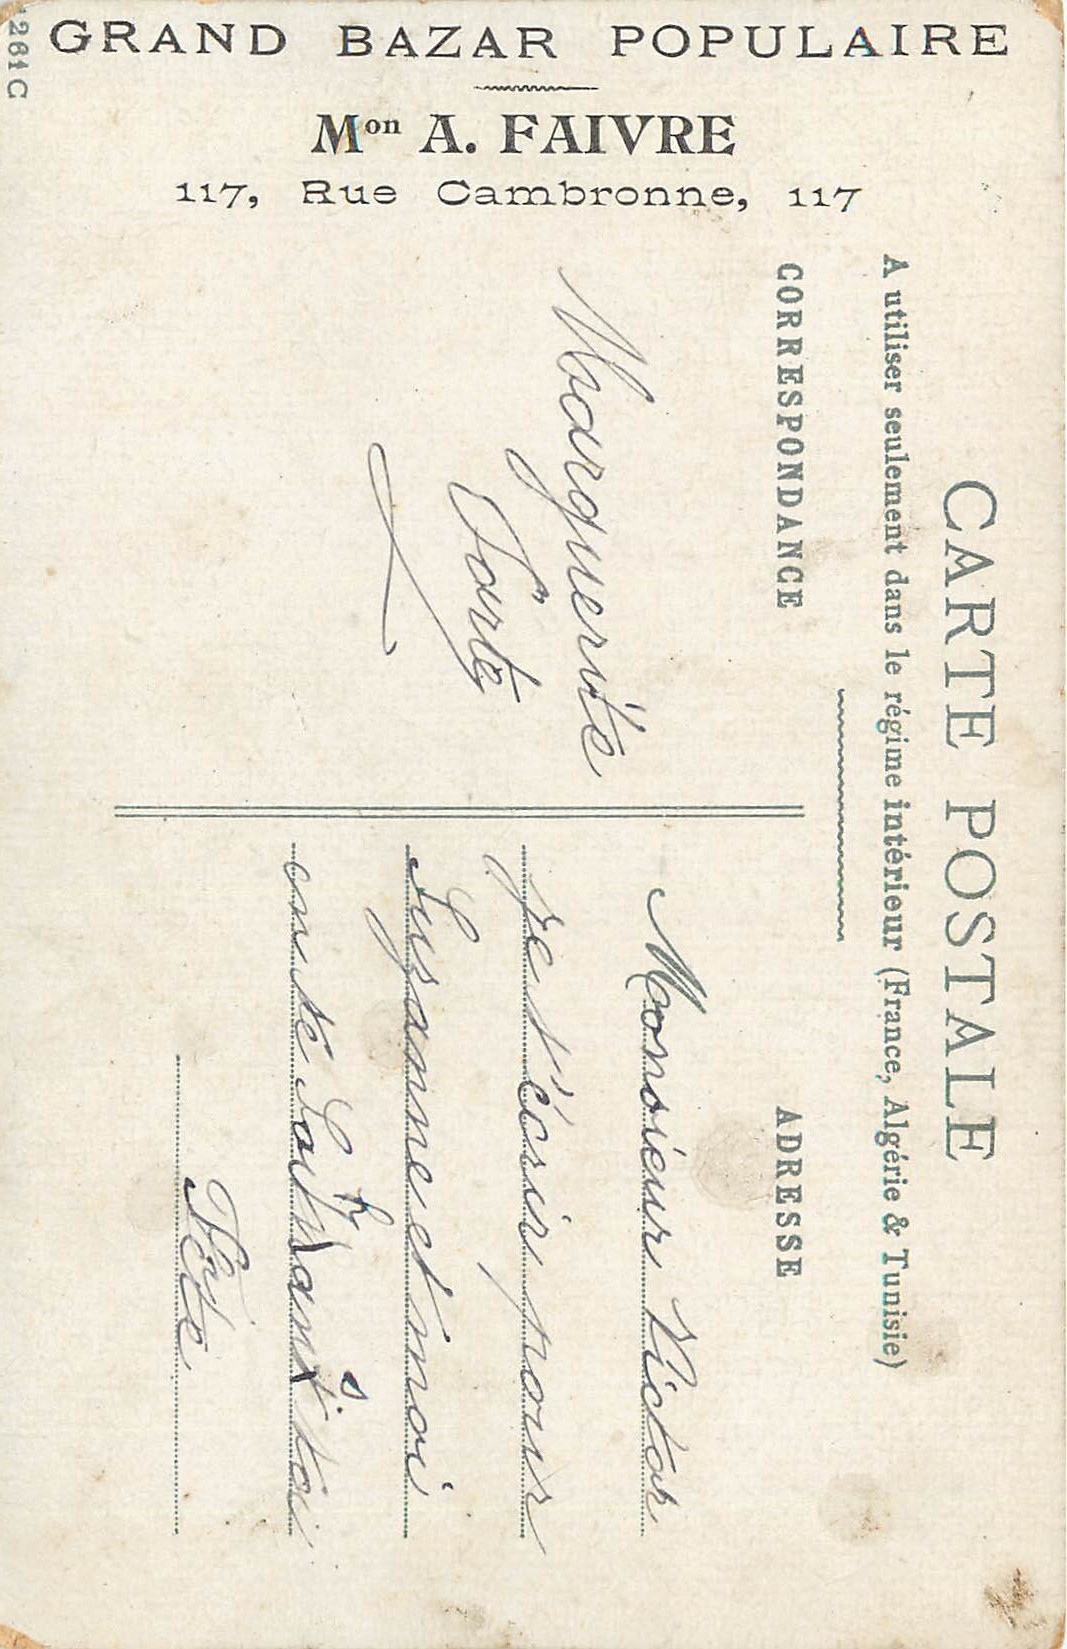 1261 C
GRAND BAZAR POPULAIRE
Mon A. FAIVRE
117, Rue Cambronne, 117
CARTE POSTALE
A utiliser seulement dans le régime intérieur (France, Algérie & Tunisie)
CORRESPONDANCE
Marguerite
ADRESSE
Monsieur Victor
je t'écris pour
Suzanne et moi
en te Souh
s toi
Fête